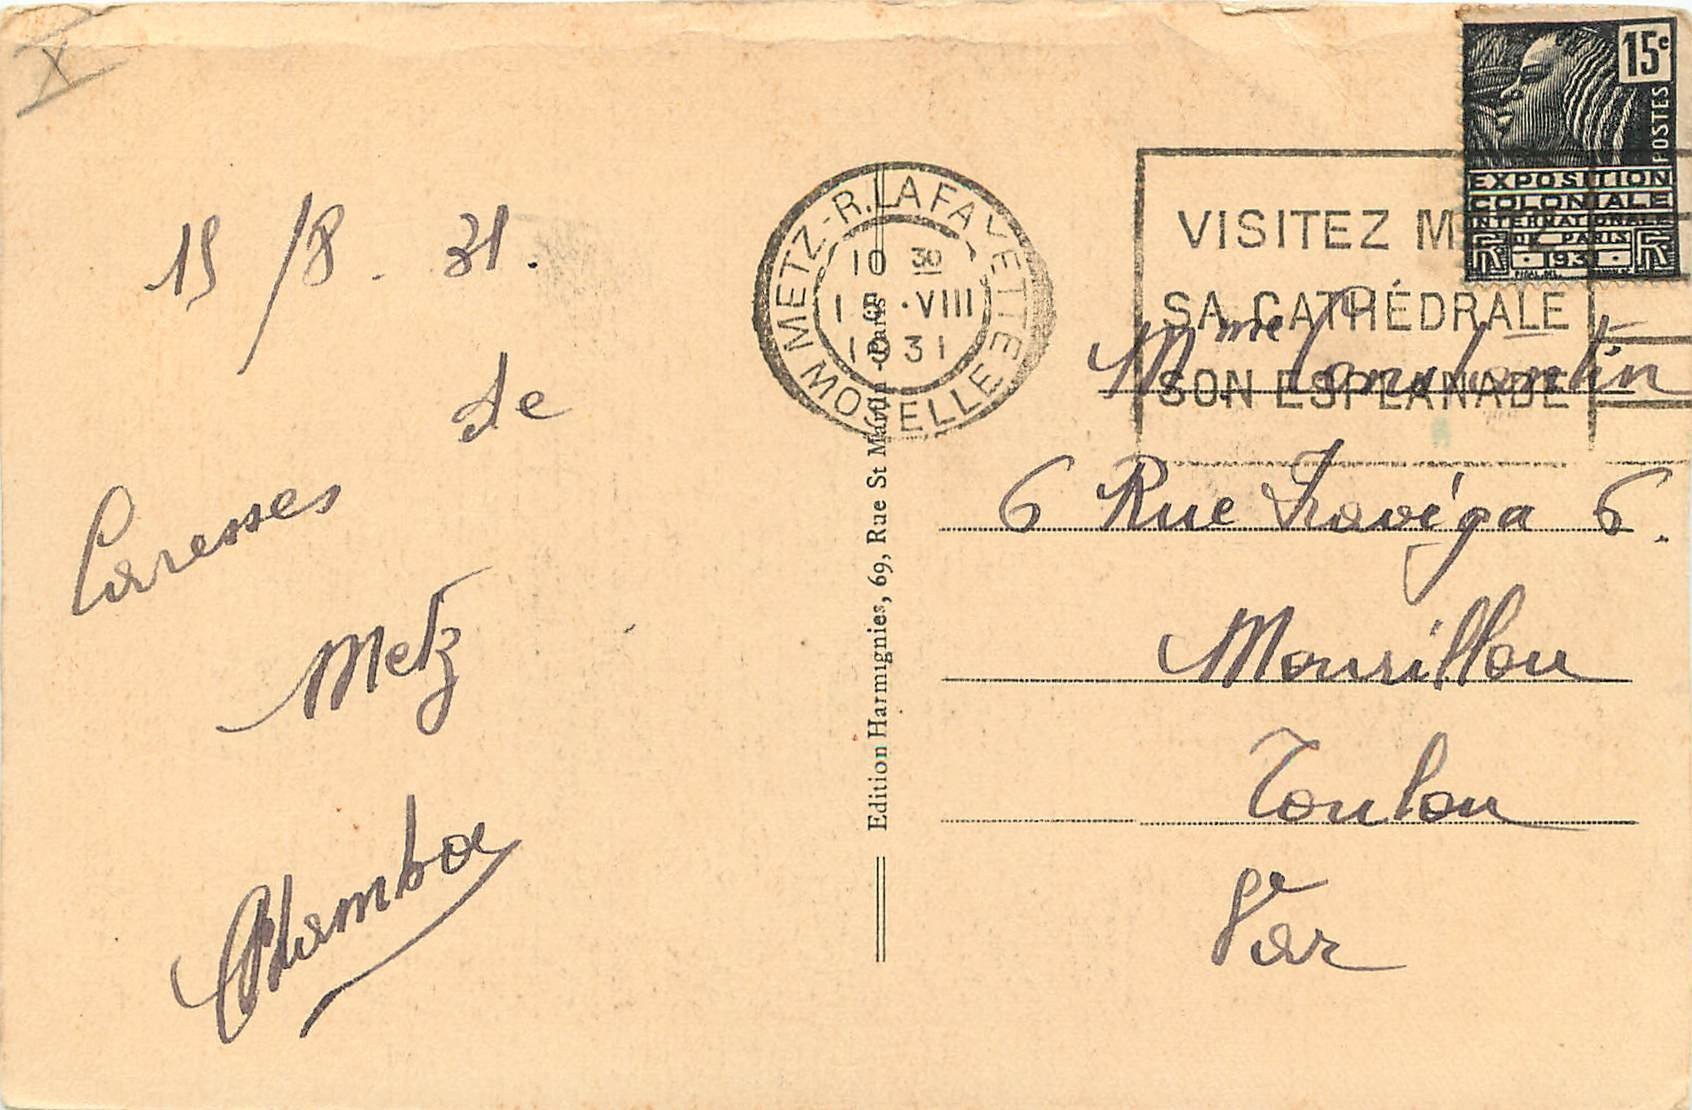 X
15/8. 31.
de
Caresses
Metz
Edition Harmignies, 69, Rue St Martin - Paris
METZ-R.LAFAYETTE
10 30
15 .VIII
1931
MOSELLE
VISITEZ M
SA CATHÉDRALE
SON ESPLANADE
15c
POSTES
EXPOSITION
COLONIALE
INTERNATIONALE
DE PARIS
RF 1931 RF
Mme Constantin
6 Rue 6.
Mourillon
Toulon
Var